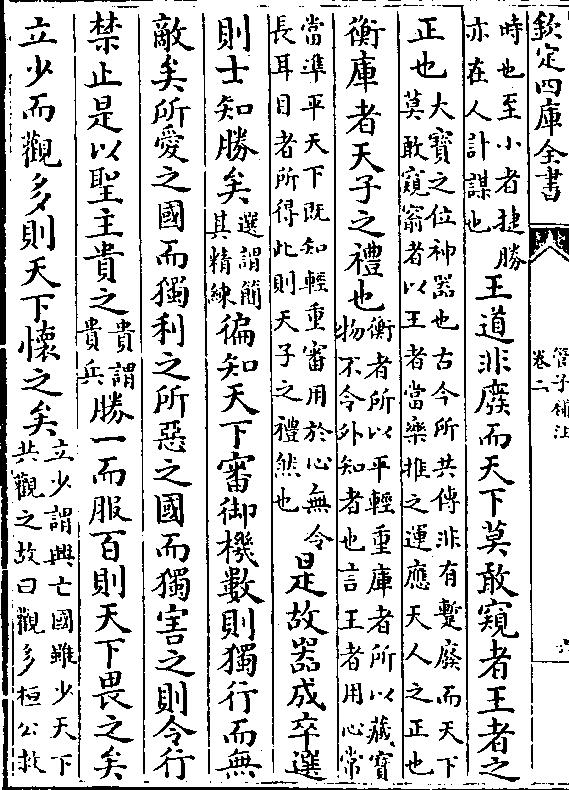 欽定四庫全書
管子補注
卷二
時也至小者捷勝
亦在人計謀也
王道非廢而天下莫敢窺者王者之
正也
大寶之位神器也古今所共傳非有蹔廢而天下
莫敢窺窬者以王者當樂推之運應天人之正也
衡庫者天子之禮也
衡者所以平輕重庫者所以藏寳
物不令外知者也言王者用心常
當準平天下既知輕重審用於心無令
長耳目者所得此則天子之禮然也
是故器成卒選
則士知勝矣
選謂簡
其精練
徧知天下審御機數則獨行而無
敵矣所愛之國而獨利之所惡之國而獨害之則令行
禁止是以聖主貴之
貴謂
貴兵
勝一而服百則天下畏之矣
立少而觀多則天下懷之矣
立少謂興亡國雖少天下
共觀之故曰觀多桓公救